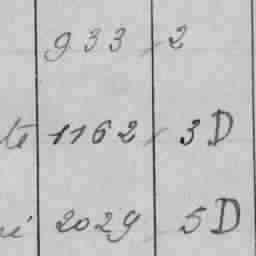 933 2
te 1162 3D
2029 5D